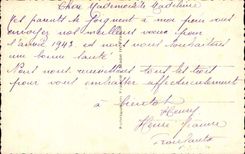 Chère Mademoiselle Madeleine
Mes parents se joignent à moi pour vous
envoyer nos meilleurs vœux pour
l'année 1943 et nous vous souhaitons
une bonne santé.
Nous nous réunissons tous les
pour vous embrasser affectueusement
à bientôt
Henri